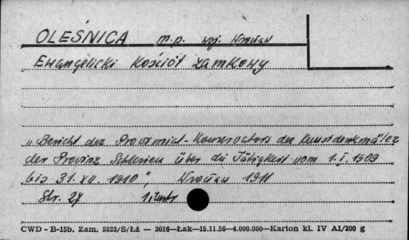 OLEŚNICA m.p. woj. Wrocław
Ewangelicki Kościół zamkowy
„Bericht des Provinzial-Konservators der Kunstdenkmäler
der Provinz Schlesien über die Tätigkeit vom 1.I.1909
bis 31.XII. 1910", Wrocław 1911
Str. 27
CWD - B-15b. Zam. 5823/S/Łź — 3016—Łak—15.11.56—4.000.000—Karton kl. IV A1/200 g